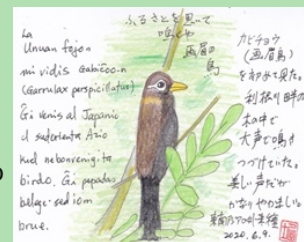 La
Unuan fojon
mi vidis Gabicoo-n
(Garrulax perspicillatus)
Ĝi venis al Japanio
el sudorienta Azio
kiel nebonvenigita
birdo. Ĝi pepadas
belge sed iom
brue.
ふるさとを思いて
鳴くや
画眉鳥
カビチョウ
(画眉鳥)
を初めて見た。
利根川畔の
林の中で
大声で鳴き
つづけていた。
美しい声だが
かなりやかましい。
2020.6.9.